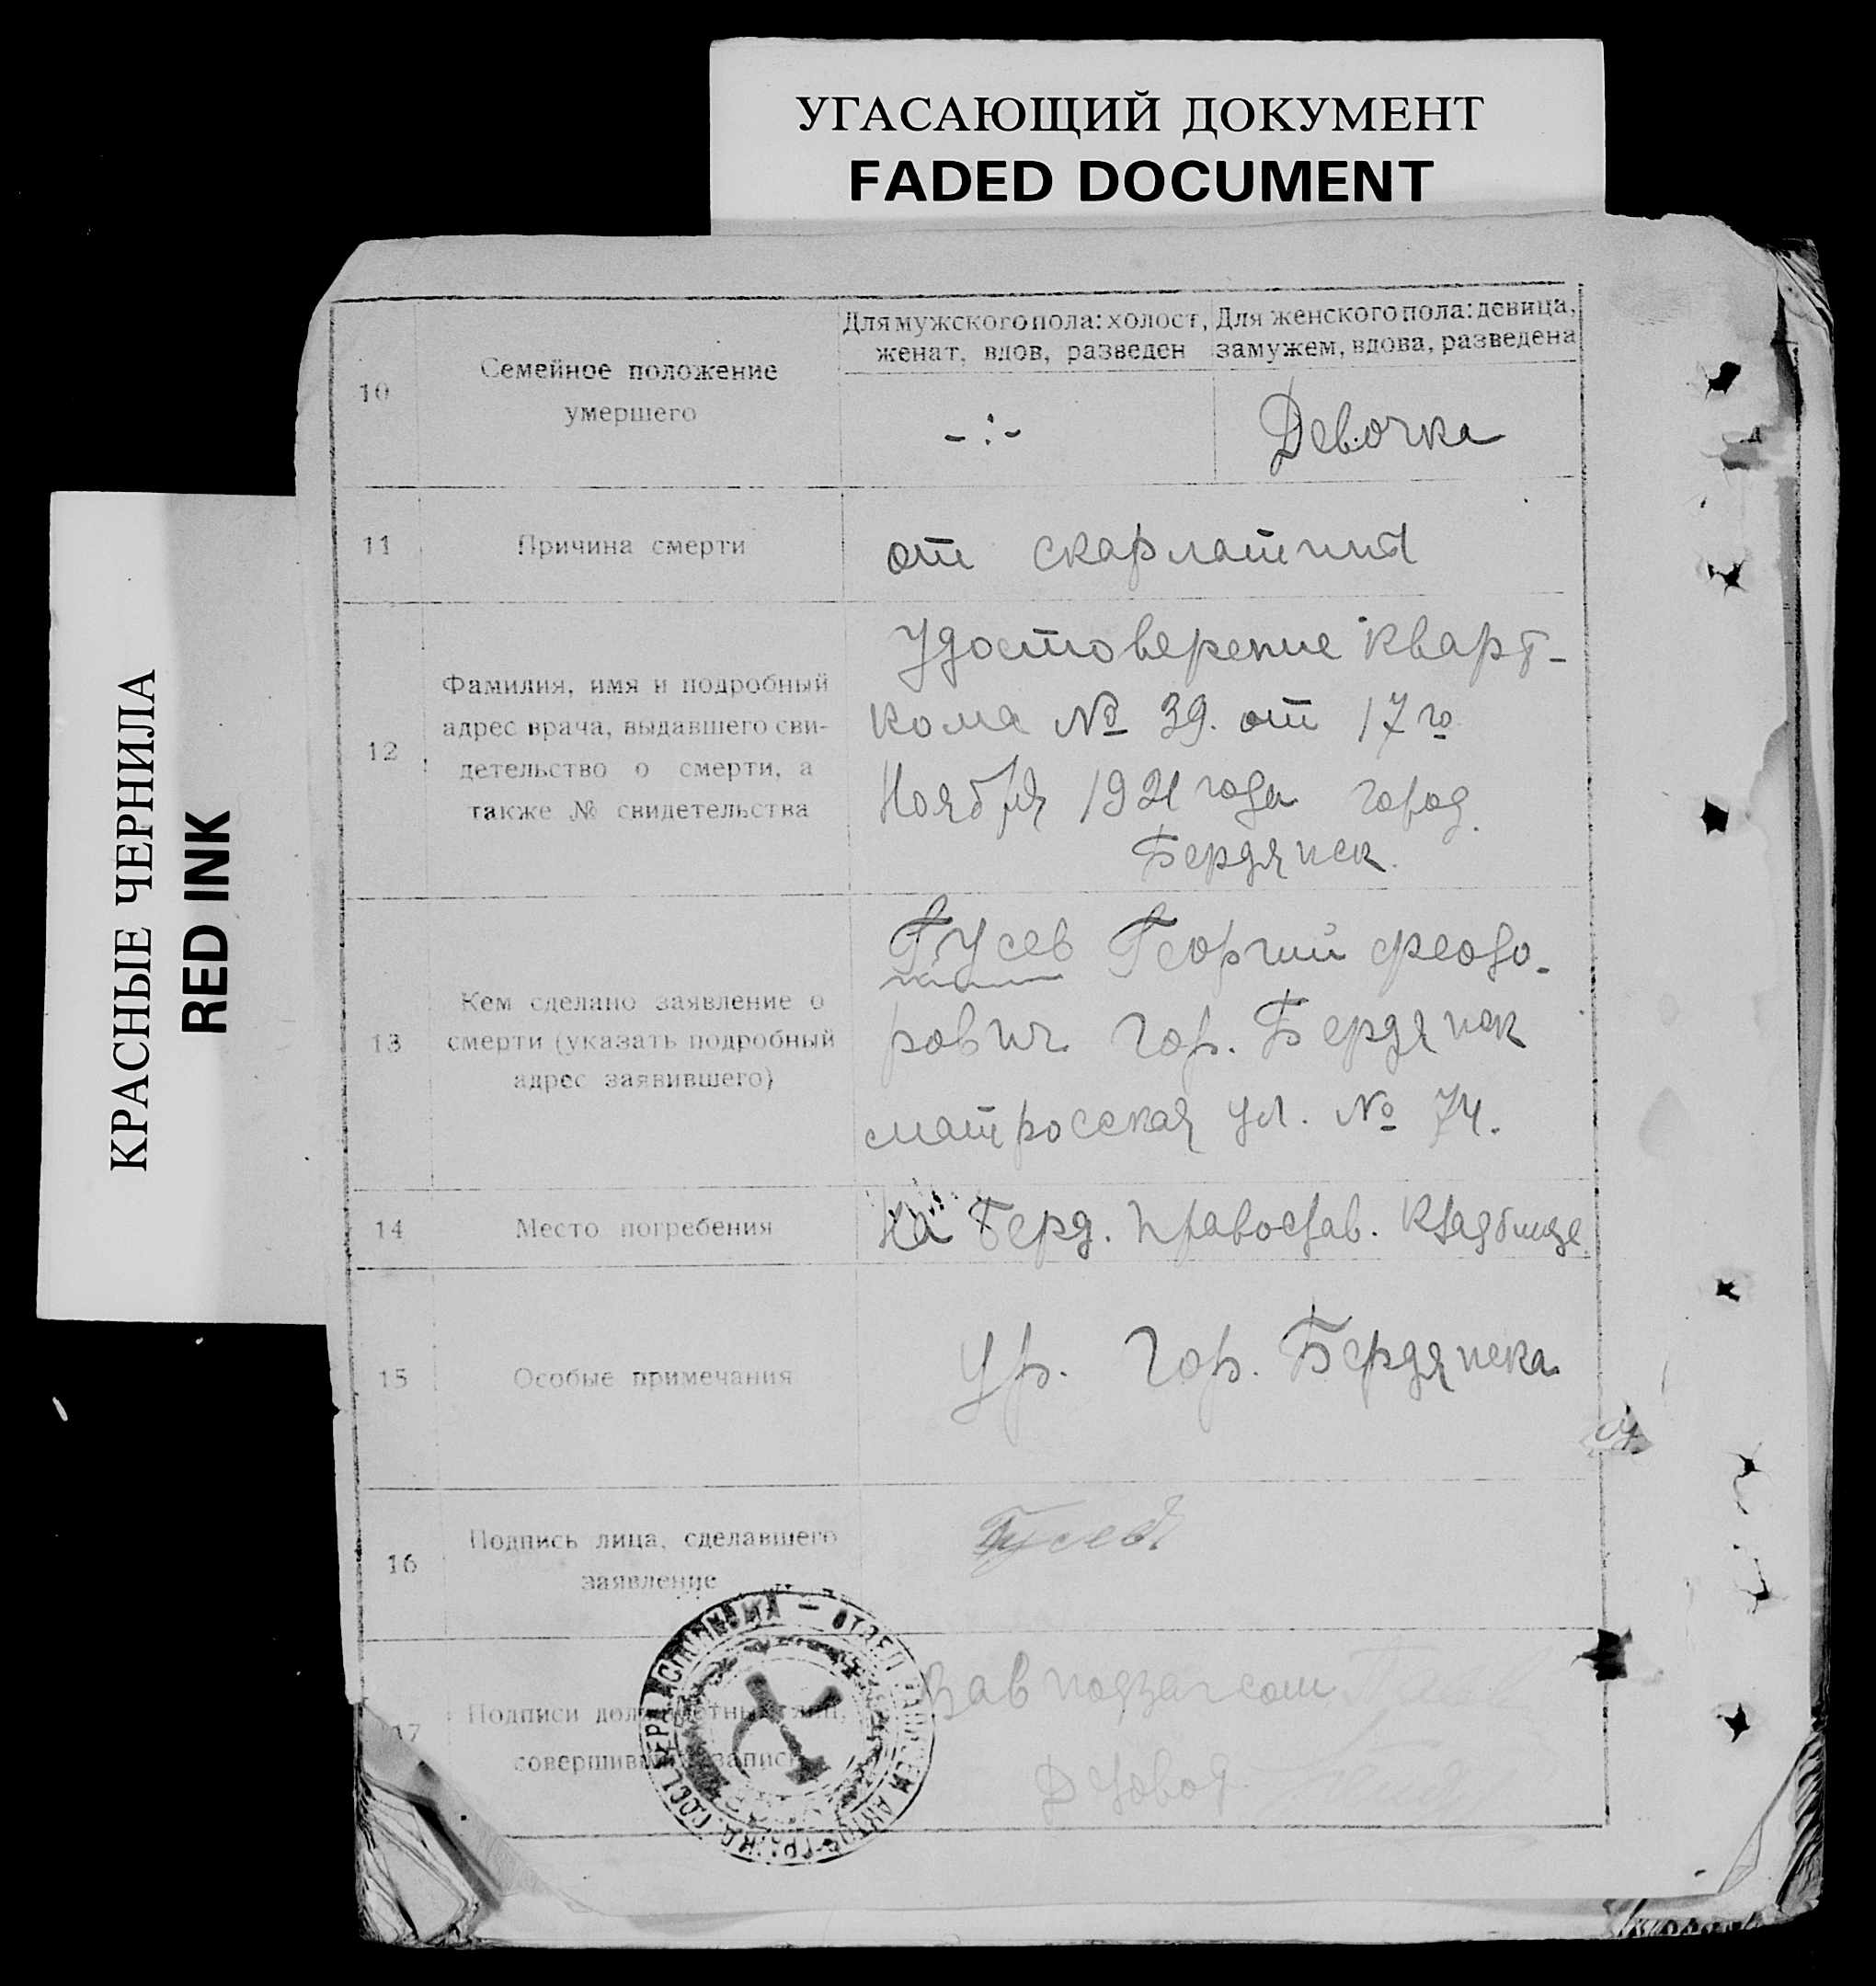 УГАСАЮЩИЙ ДОКУМЕНТ
FADED DOCUMENT
КРАСНЫЕ ЧЕРНИЛА
RED INK
10
Семейное положение
умершего
Для мужского пола: холост,
женат, вдов, разведен
Для женского пола: девица,
замужем, вдова, разведена
-:-
Девочка
11
Причина смерти
от скарлатины
12
Фамилия, имя и подробный
адрес врача, выдавшего сви-
детельство о смерти, а
также № свидетельства
Удостоверение Кварт-
кома № 39. от 17го
Ноября 1921 года город.
Бердянск.
13
Кем сделано заявление о
смерти (указать подробный
адрес заявившего)
Гусев Георгий Феодо-
рович гор. Бердянск
матросская ул. № 74.
14
Место погребения
На Берд. Православ. Кладбище
15
Особые примечания
Ур. Гор. Бердянска
16
Подпись лица, сделавшего
заявление
Гусев
17
Подписи
совершивш записи
Зав подзагсом